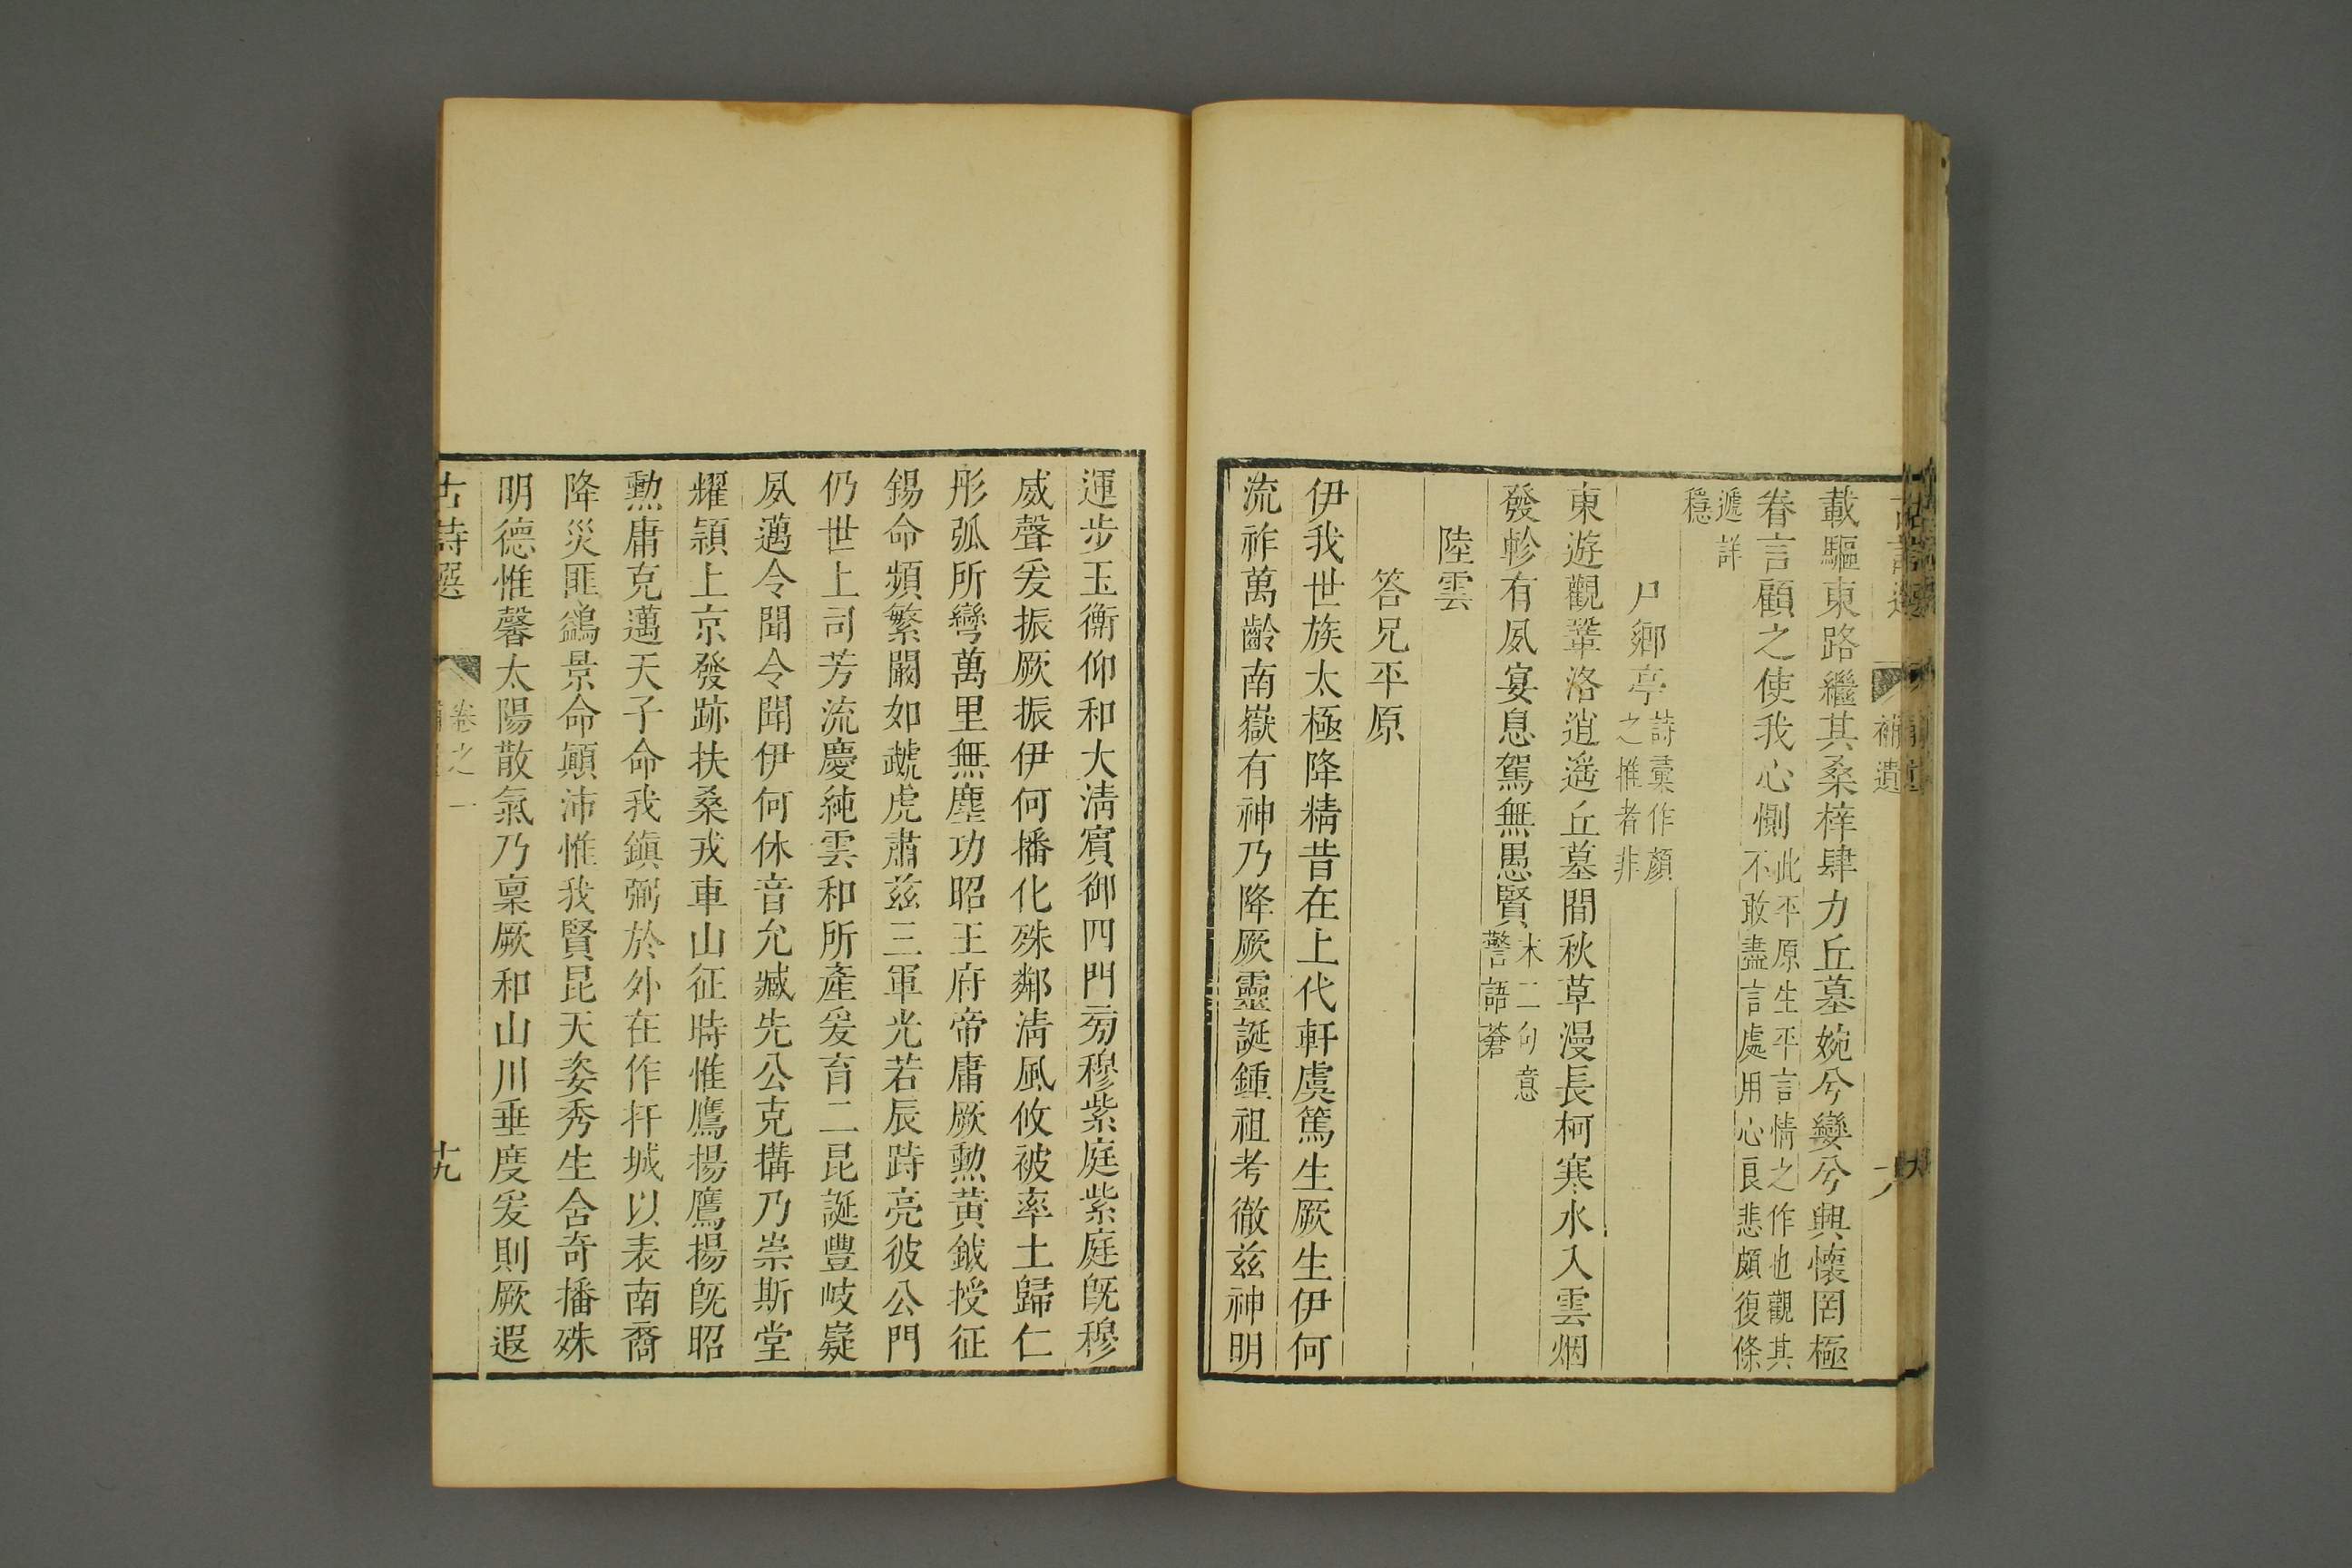 補遺
載驅東路繼其桑梓肆力丘墓婉兮孌兮興懷罔極
眷言顧之使我心惻此平原生平言情之作也觀其
不敢盡言處用心良悲頗復條
遞詳
穩
尸鄉亭詩彙作顏
之推者非
東遊觀鞏洛逍遙丘墓間秋草漫長柯寒水入雲烟
發軫有夙宴息駕無愚賢末二句意
警語蒼
陸雲
答兄平原
伊我世族太極降精昔在上代軒虞篤生厥生伊何
流祚萬齡南嶽有神乃降厥靈誕鍾祖考徹茲神明
運步玉衡仰和大清賓御四門旁穆紫庭紫庭既穆
威聲爰振厥振伊何播化殊鄰清風攸被率土歸仁
彤弧所彎萬里無塵功昭王府帝庸厥勳黃鉞授征
錫命頻繁闞如虓虎肅茲三軍光若辰跱亮彼公門
仍世上司芳流慶純雲和所產爰育二昆誕豐岐嶷
夙邁令聞令聞伊何休音允臧先公克搆乃崇斯堂
耀穎上京發跡扶桑戎車山征時惟鷹揚鷹揚既昭
勳庸克邁天子命我鎮弼於外在作扞城以表南裔
降災匪蠲景命顛沛惟我賢昆天姿秀生含奇播殊
明德惟馨太陽散氣乃稟厥和山川垂度爰則厥遐
古詩選
卷之一
十九